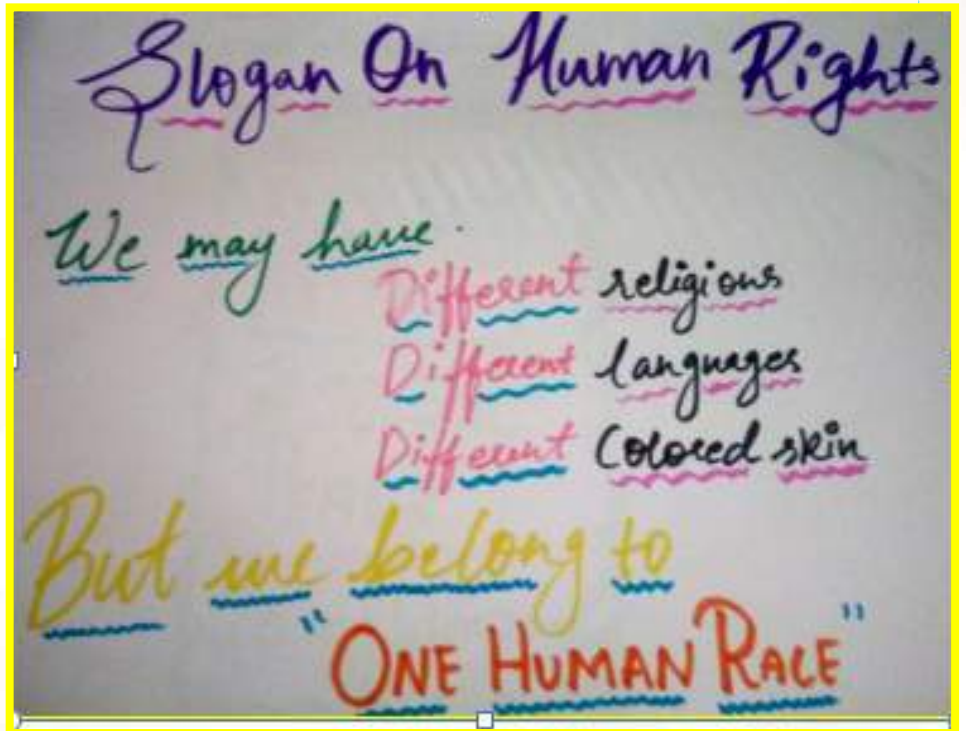 Slogan On Human Rights
We may have.
Different religions
Different languages
Different Colored skin
But we belong to
"ONE HUMAN RACE"